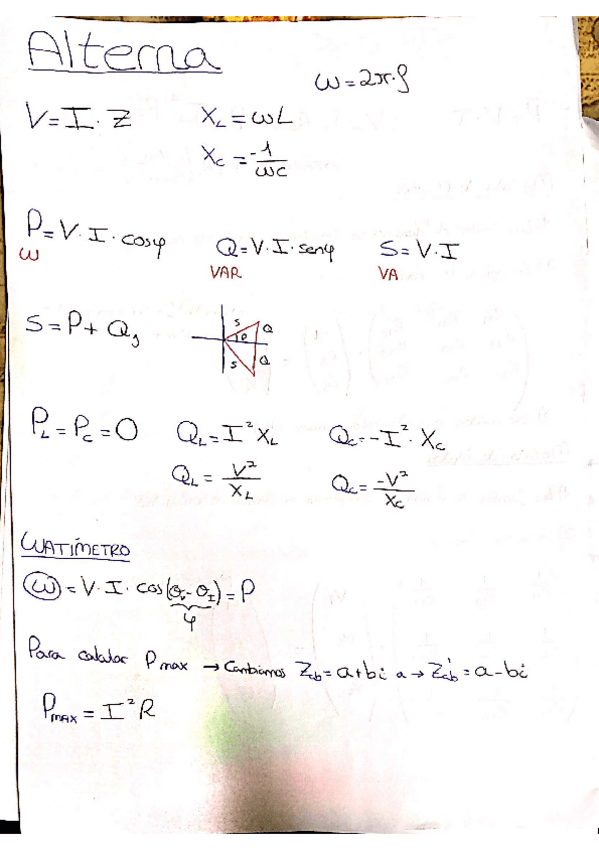 Alterna
ω = 2π·f
V = I · Z
X_L = ωL
X_C = -1/ωC
P = V · I · cosφ
Q = V · I · senφ
S = V · I
W
VAR
VA
S = P + Qj
S
Q
θ
S
Q
P_L = P_C = 0
Q_L = I² X_L
Q_C = -I² · X_C
Q_L = V²/X_L
Q_C = -V²/X_C
WATÍMETRO
W = V · I · cos(θ_V - θ_I) = P
φ
Para calcular Pmax → Cambiamos Z_cb = a + bi a → Z'_cb = a - bi
P_MAX = I² R